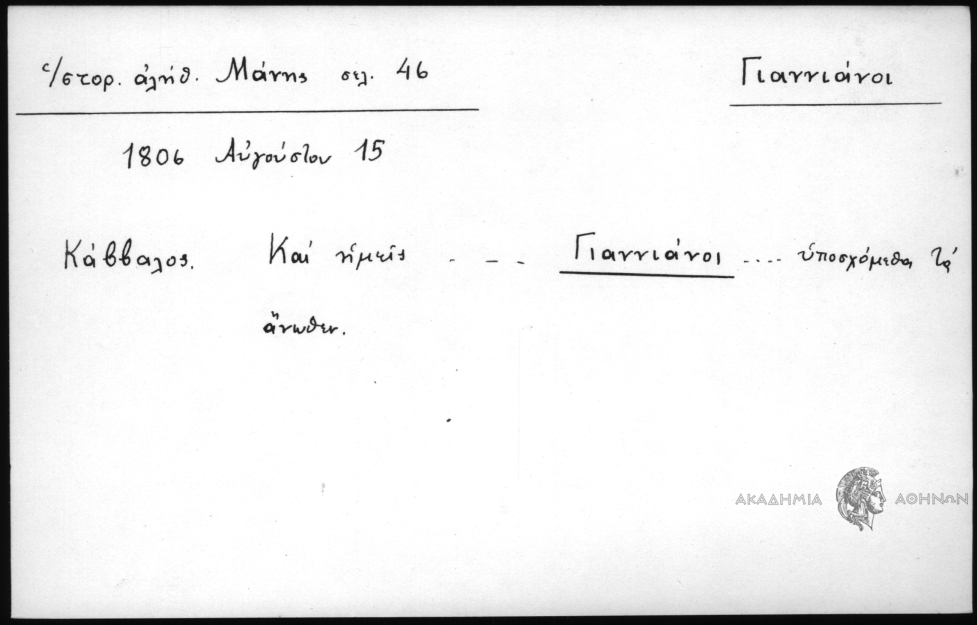 Ἱστορ. ἀλήθ. Μάνης σελ. 46
Γιαννιάνοι
1806 Αὐγούστου 15
Κάββαλος. Καί ἡμεῖς . - - - Γιαννιάνοι .... ὑποσχόμεθα τά
ἄνωθεν.
ΑΚΑΔΗΜΙΑ ΑΘΗΝΩΝ